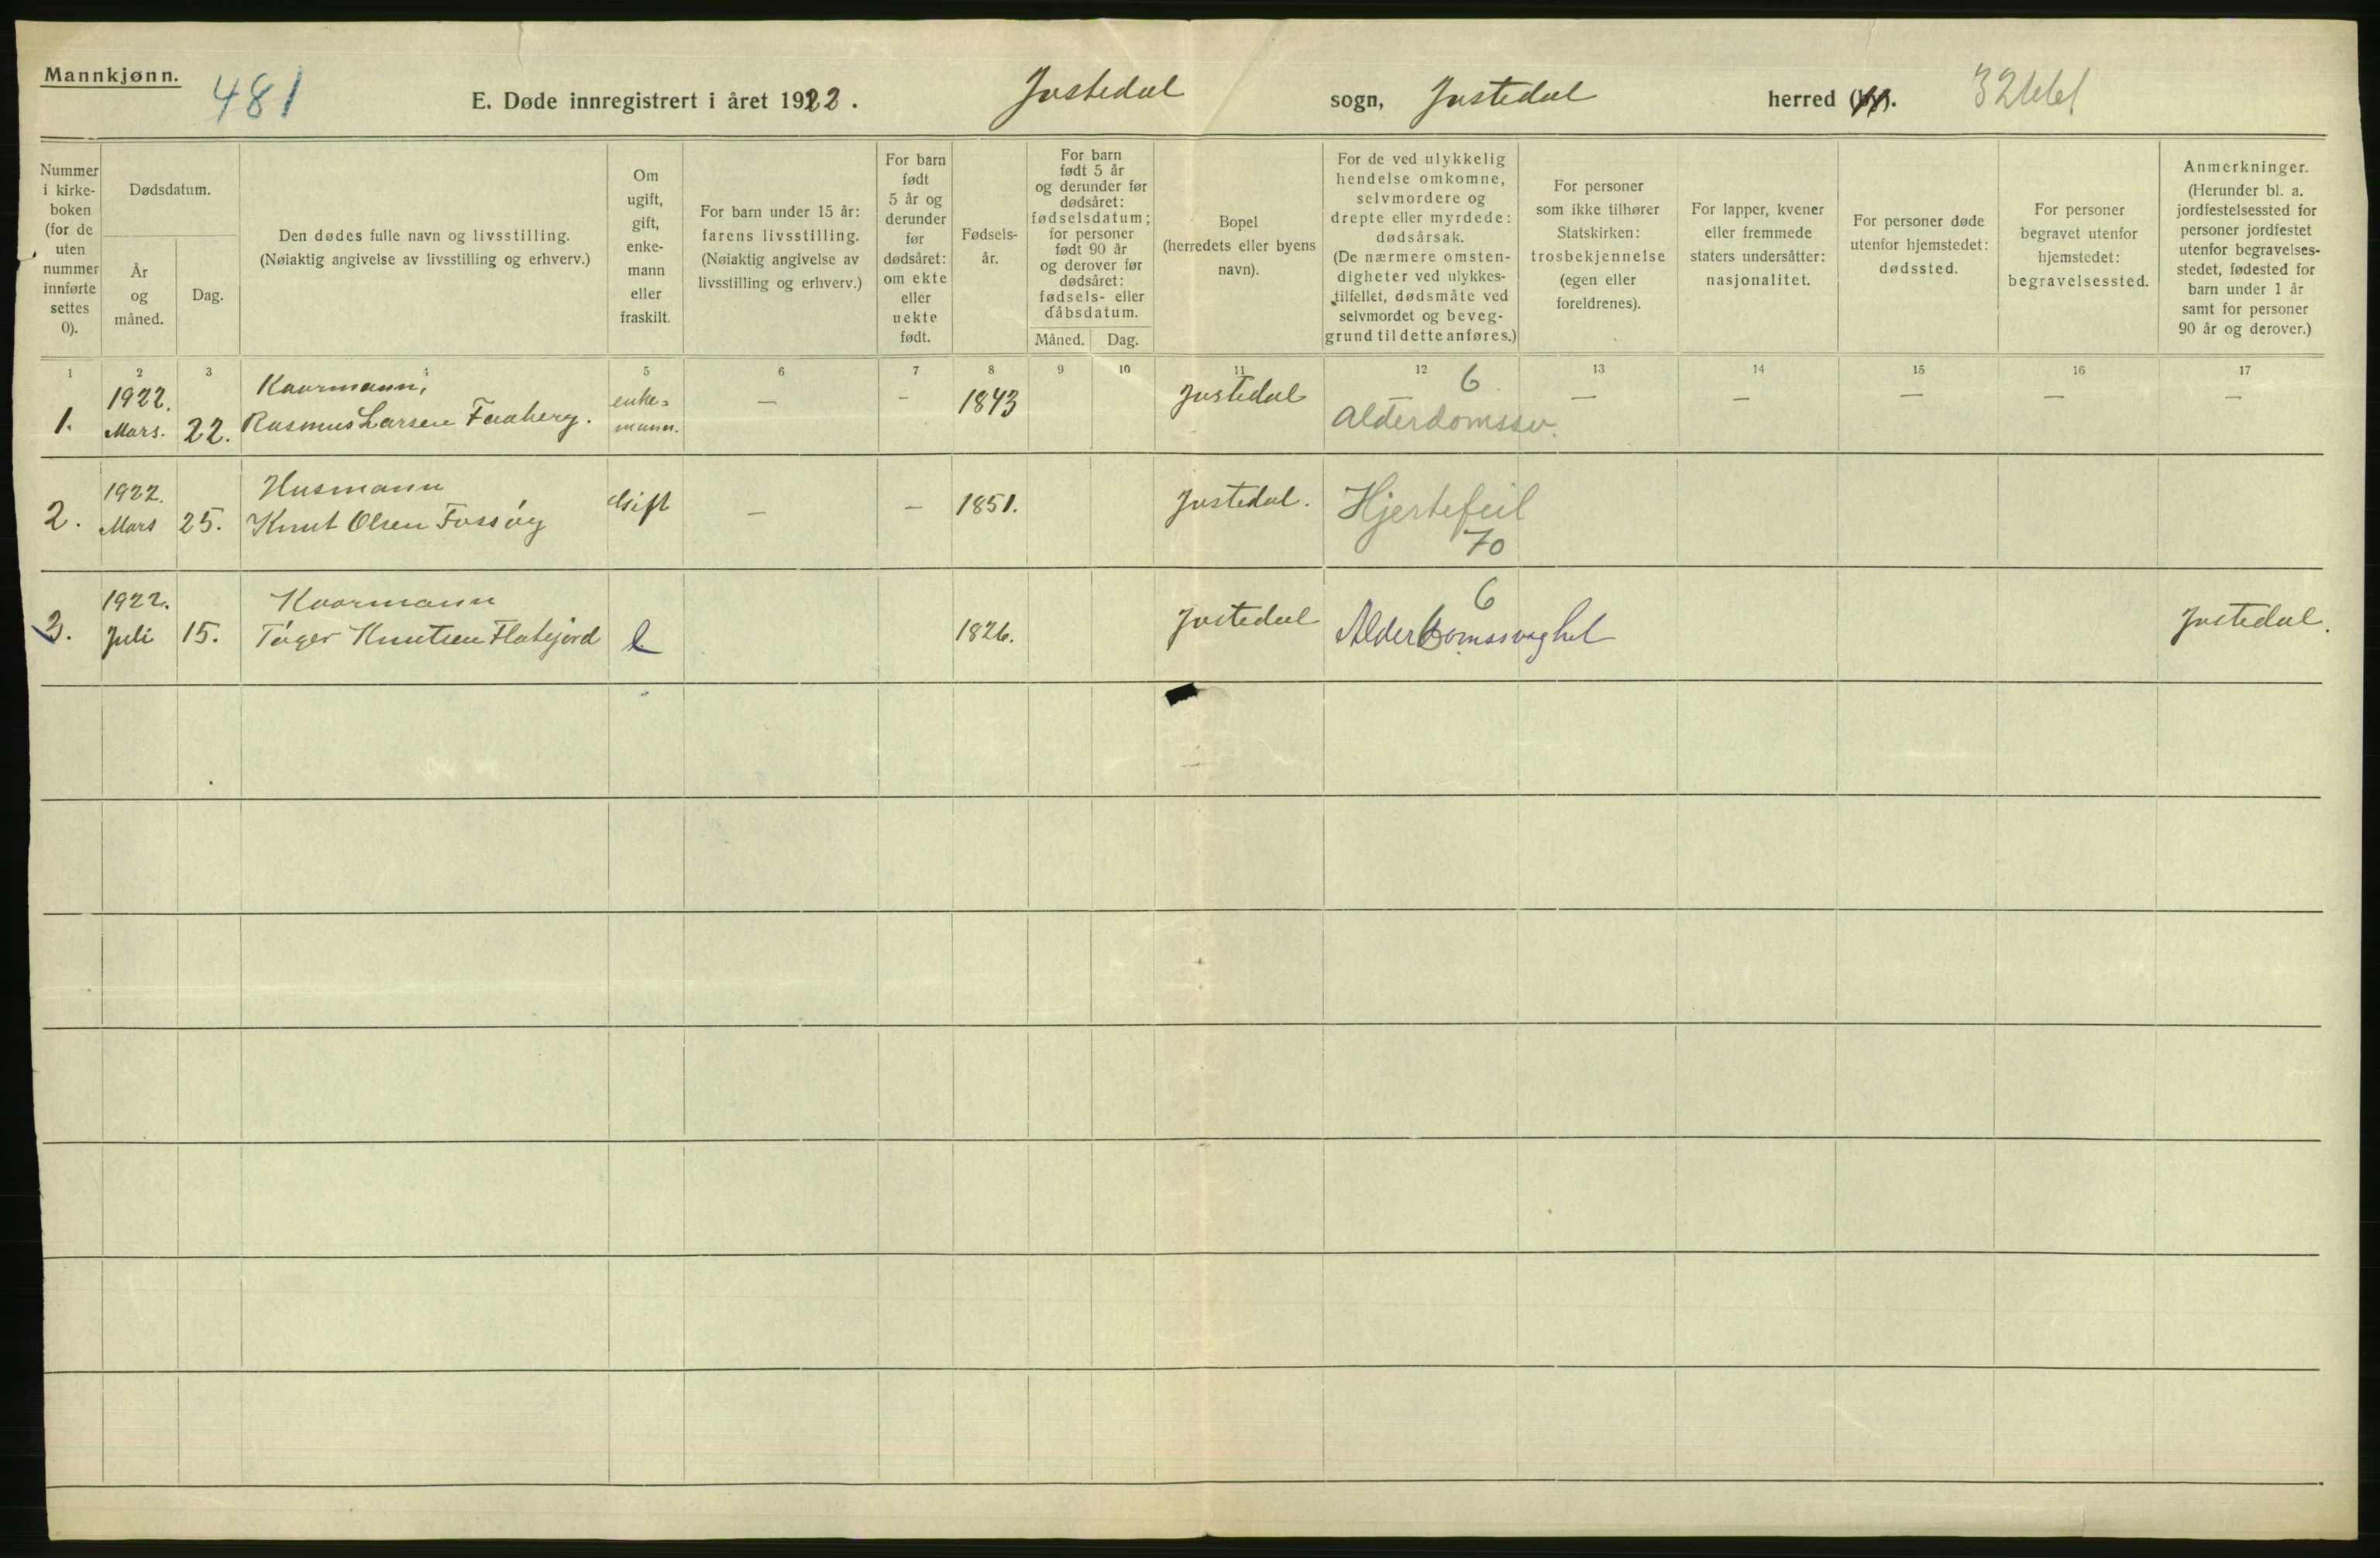 Mannkjønn.
481
E. Døde innregistrert i året 1922. Jostedal sogn, Jostedal herred (by).
Nummer i kirke-boken (for de uten nummer innførte settes 0).
Dødsdatum.
År og måned.
Dag.
Den dødes fulle navn og livsstilling.
(Nøiaktig angivelse av livsstilling og erhverv.)
Om ugift, gift, enke-mann eller fraskilt.
For barn under 15 år: farens livsstilling.
(Nøiaktig angivelse av livsstilling og erhverv.)
For barn født 5 år og derunder før dødsåret: om ekte eller uekte født.
Fødsels-år.
For barn født 5 år og derunder før dødsåret: fødselsdatum; for personer født 90 år og derover før dødsåret: fødsels- eller dåbsdatum.
Måned. Dag.
Bopel (herredets eller byens navn).
For de ved ulykkelig hendelse omkomne, selvmordere og drepte eller myrdede: dødsårsak.
(De nærmere omsten-digheter ved ulykkes-tilfellet, dødsmåte ved selvmordet og beveg-grund til dette anføres.)
For personer som ikke tilhører Statskirken: trosbekjennelse (egen eller foreldrenes).
For lapper, kvener eller fremmede staters undersåtter: nasjonalitet.
For personer døde utenfor hjemstedet: dødssted.
For personer begravet utenfor hjemstedet: begravelsessted.
Anmerkninger.
(Herunder bl. a. jordfestelsessted for personer jordfestet utenfor begravelses-stedet, fødested for barn under 1 år samt for personer 90 år og derover.)
1 2 3 4 5 6 7 8 9 10 11 12 13 14 15 16 17
1. 1922. Mars. 22. Kaarmann, Rasmus Larsen Faaberg. enke=mann. — — 1843 Jostedal — 6 Alderdomssv. — — — — —
2. 1922. Mars 25. Husmann Knut Olsen Fossøy Gift — — 1851. Jostedal. Hjertefeil 70
3. 1922. Juli 15. Kaarmann Tøger Knutsen Flatejord e 1826. Jostedal 6 Alderdomssvaghet Jostedal.